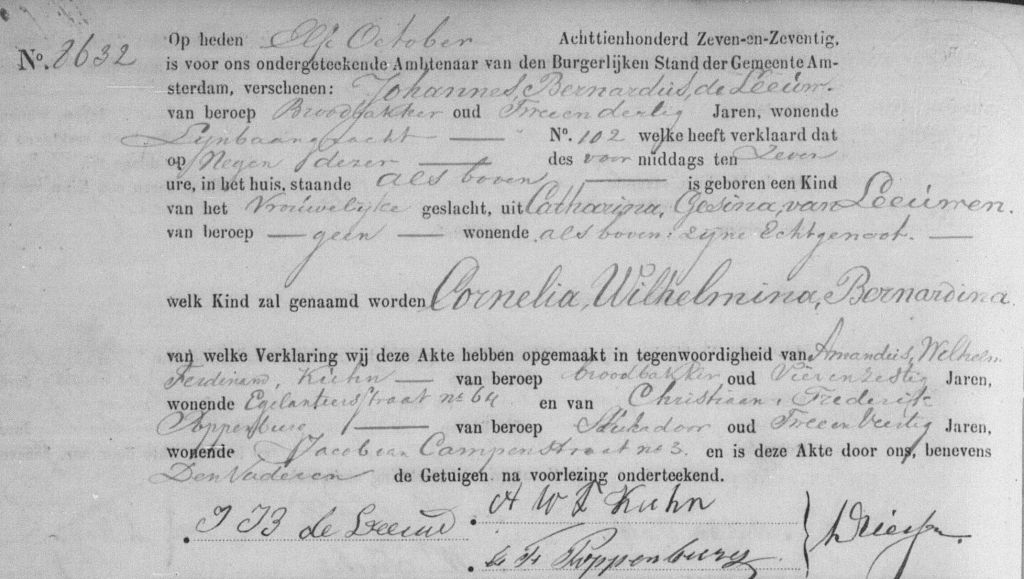 No. 8632
Op heden Elf October Achttienhonderd Zeven-en-Zeventig,
is voor ons ondergeteekende Ambtenaar van den Burgerlijken Stand der Gemeente Am-
sterdam, verschenen: Johannes, Bernardus, de Leeuw.
van beroep Broodbakker oud Tweeendertig Jaren, wonende
Lynbaansgracht — No. 102 welke heeft verklaard dat
op Negen dezer — des voor middags ten Zeven
ure, in het huis, staande als boven — is geboren een Kind
van het Vrouwelyke geslacht, uit Catharina, Gesina, van Leeuwen.
van beroep — geen — wonende als boven: zyne Echtgenoot. —
welk Kind zal genaamd worden Cornelia, Wilhelmina, Bernardina
van welke Verklaring wij deze Akte hebben opgemaakt in tegenwoordigheid van Amandus, Wilhelm
Ferdinand, Kuhn — van beroep broodbakker oud Vierenzestig Jaren,
wonende Egelantiersstraat no 64 en van Christiaan, Frederik
Poppenburg — van beroep oud Tweeenveertig Jaren,
wonende Jacob van Campenstraat no 3. en is deze Akte door ons, benevens
Den Vader en de Getuigen na voorlezing onderteekend.
J B de Leeuw
A W F Kuhn
C F Poppenburg